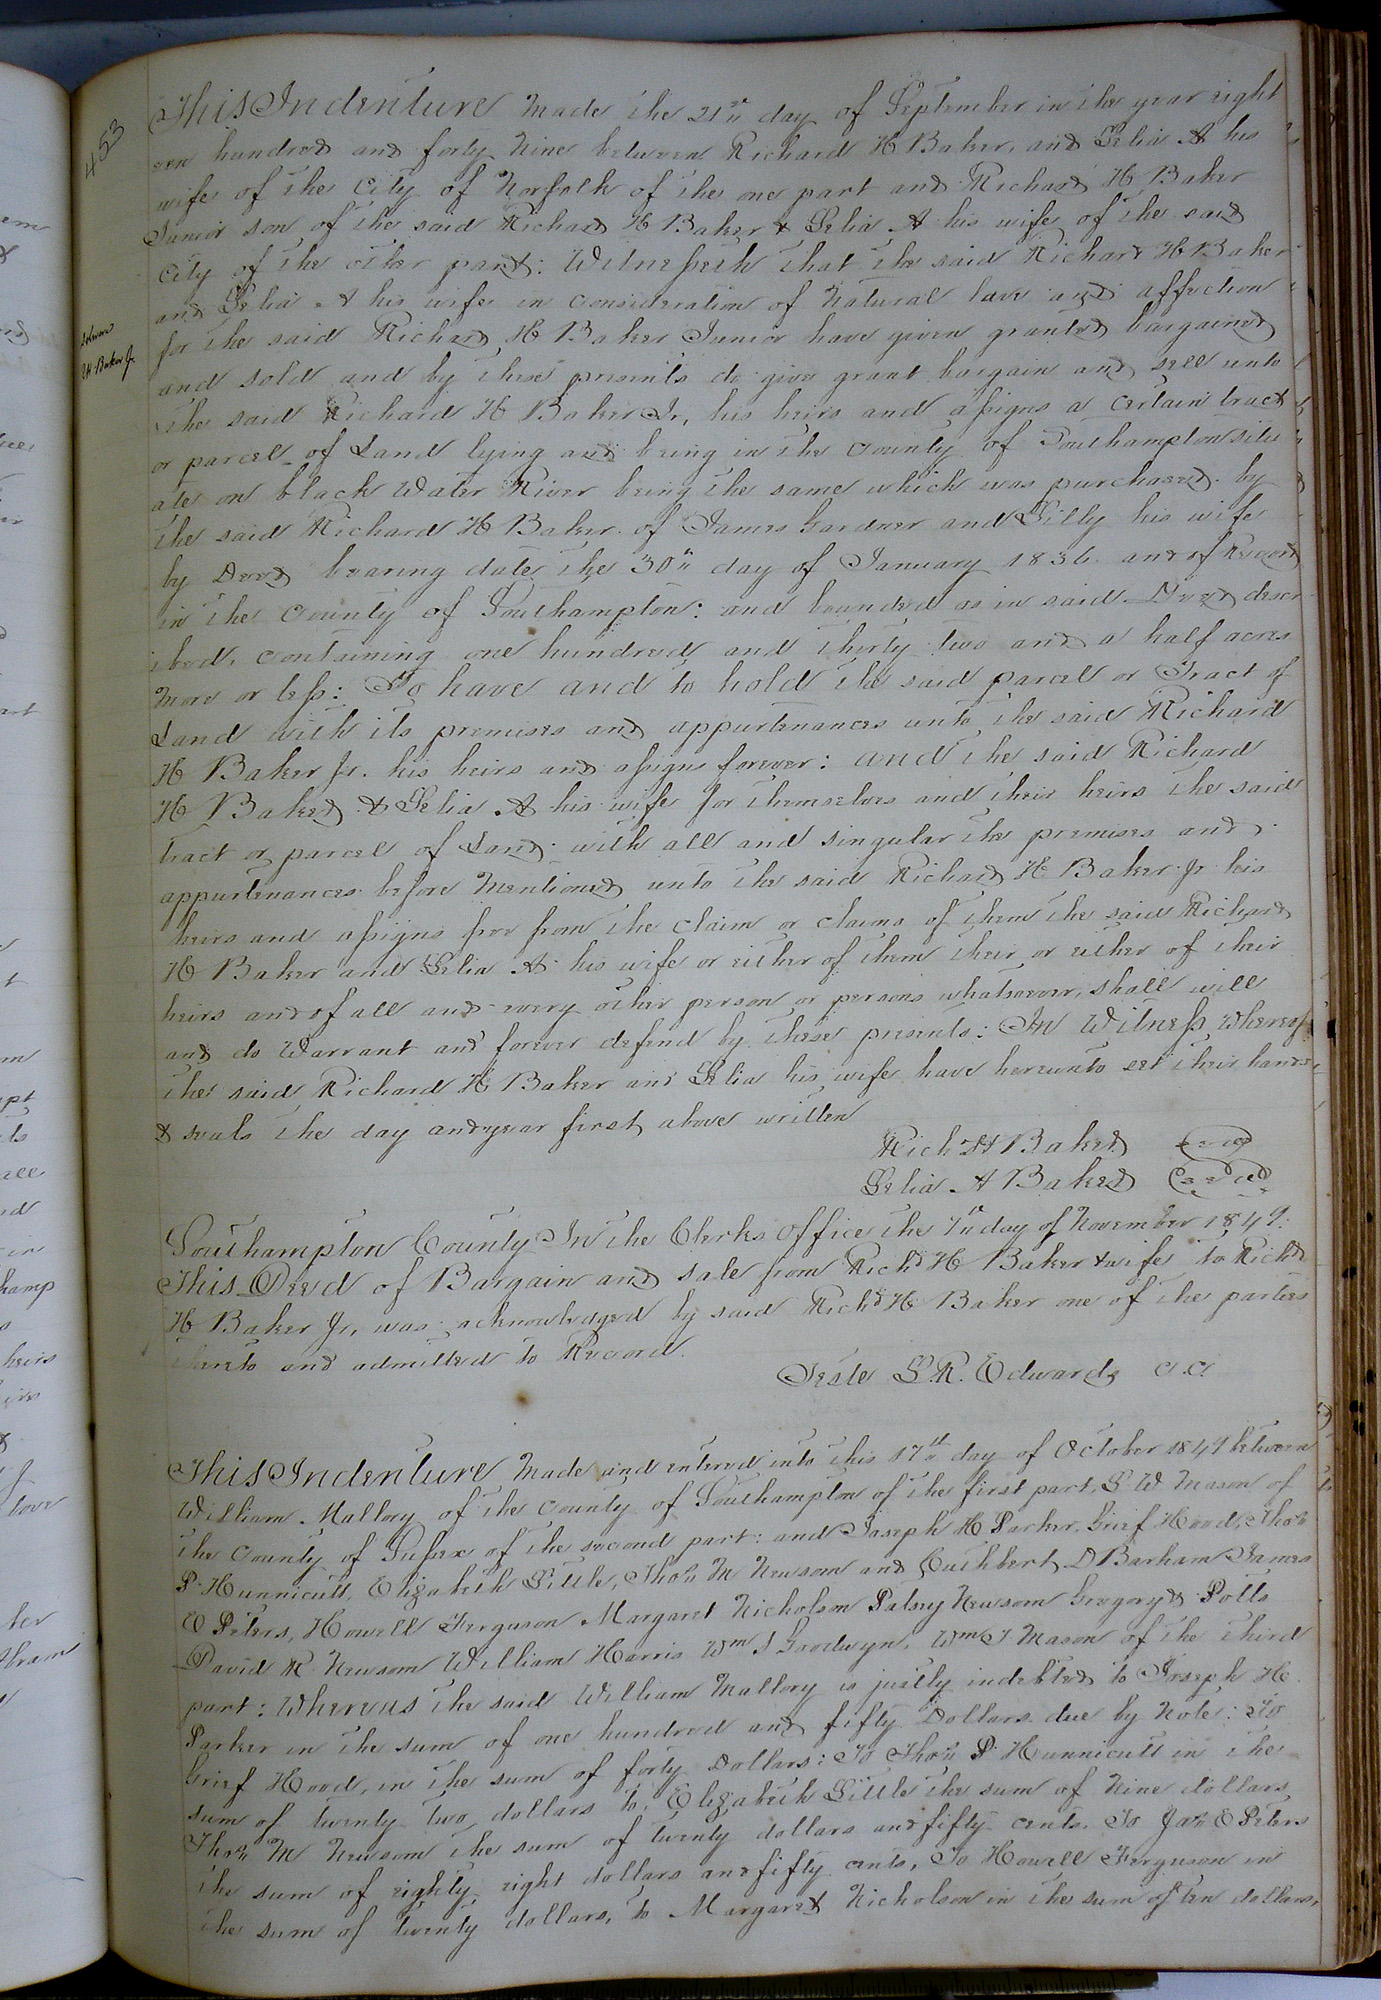 453
This Indenture made the 21st day of September in the year eight
een hundred and forty nine between Richard H Baker, and Lelia A his
wife of the City of Norfolk of the one part and Richard H Baker
Junior son of the said Richard H Baker & Lelia A his wife of the said
City of the other part: Witnesseth that the said Richard H Baker
and Lelia A his wife in consideration of natural love and affection
for the said Richard H Baker Junior have given granted bargained
R H Baker Jr.
and sold and by these presents do give grant bargain and sell unto
the said Richard H Baker Jr, his heirs and assigns a certain tract
or parcel of Land lying and being in the County of Southampton situ
ate on black Water River being the same which was purchased by
the said Richard H Baker of James Gardner and Silly his wife
by Deed bearing date the 30th day of January 1836 and of Record
in the County of Southampton: and bounded as in said Deed descr
ibed, containing one hundred and thirty two and a half acres
more or less: To have and to hold the said parcel or Tract of
Land with its premises and appurtenances unto the said Richard
H Baker Jr. his heirs and assigns forever: and the said Richard
H Baker & Lelia A his wife for themselves and their heirs the said
tract or parcel of Land with all and singular the premises and
appurtenances before mentioned unto the said Richard H Baker Jr his
heirs and assigns free from the claim or claims of them the said Richard
H Baker and Lelia A his wife or either of them their or either of their
heirs and of all and every other person or persons whatsoever, shall will
and do Warrant and forever defend by these presents: In Witness whereof
the said Richard H Baker and Lelia his wife have hereunto set their hands
& seals the day and year first above written
Rich H Baker Seal
Lelia A Baker Seal
Southampton County In the Clerks Office the 7th day of November 1849:
This Deed of Bargain and sale from Richd H Baker & wife to Richd
H Baker Jr, was acknowledged by said Richd H Baker one of the parties
thereto and admitted to Record.
Teste L. R. Edwards C.C.
This Indenture made and entered into this 17th day of October 1849 between
William Mallory of the County of Southampton of the first part, L W Mason of
the County of Sussex of the second part: and Joseph H Parker, Grief Hood, Thos
P. Hunnicutt, Elizabeth Little, Thos M Newsom and Cuthbert D Barham James
E Peters, Howell Ferguson Margaret Nicholson Patsey Newsom Gregory & Potts
David R Newsom William Harris Wm S Goodwyn, Wm T Mason of the third
part: Whereas the said William Mallory is justly indebted to Joseph H.
Parker in the sum of one hundred and fifty Dollars due by note: To
Grief Hood, in the sum of forty Dollars: To Thos P. Hunnicutt in the
sum of twenty two dollars to Elizabeth Little the sum of nine dollars
Thos M Newsom the sum of twenty dollars and fifty cents. To Jas E Peters
the sum of eighty eight dollars and fifty cents, To Howell Ferguson in
the sum of twenty dollars, to Margaret Nicholson in the sum of ten dollars,